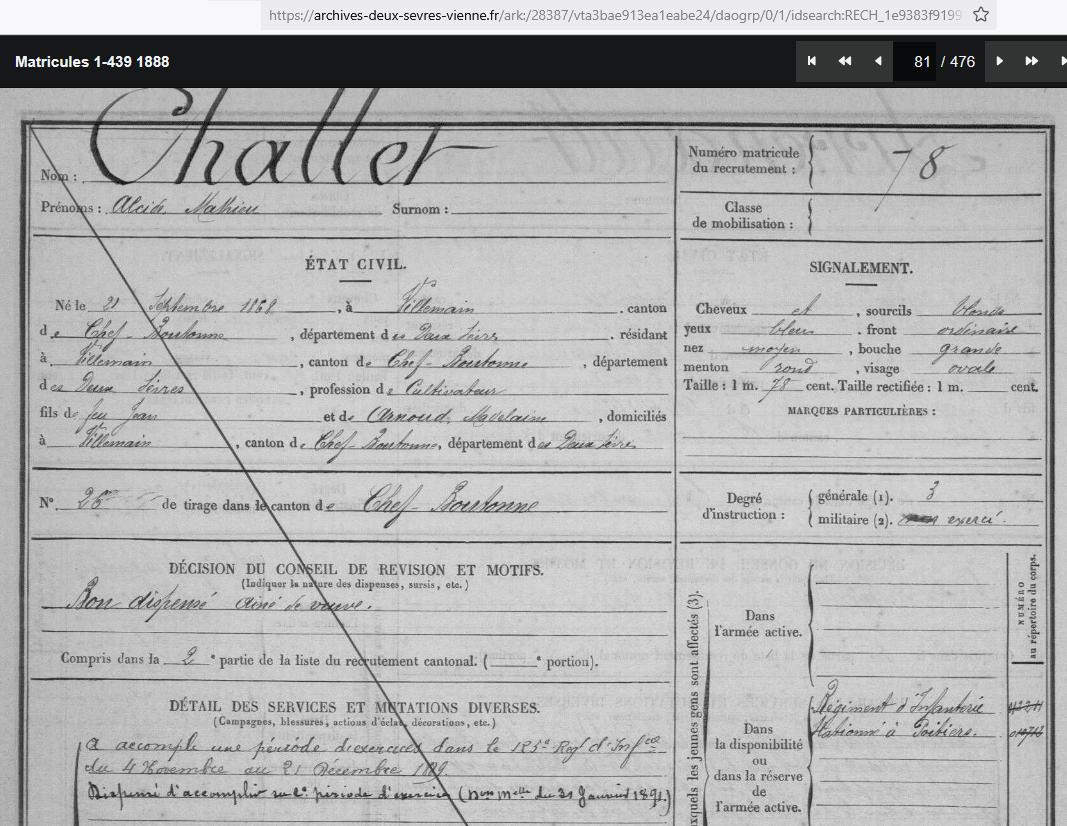 https://archives-deux-sevres-vienne.fr/ark:/28387/vta3bae913ea1eabe24/daogrp/0/1/idsearch:RECH_1e9383f9199
Matricules 1-439 1888
81 / 476
Challet
Nom :
Prénoms : Alcide Mathieu Surnom :
Numéro matricule du recrutement : 78
Classe de mobilisation :
ÉTAT CIVIL.
Né le 21 Septembre 1868, à Villemain, canton
de Chef-Boutonne, département des Deux Sèvres, résidant
à Villemain, canton de Chef-Boutonne, département
des Deux Sèvres, profession de Cultivateur
fils de feu Jean et de Arnoud, Madelaine, domiciliés
à Villemain, canton de Chef-Boutonne, département des Deux Sèvres
N° 26 de tirage dans le canton de Chef-Boutonne
SIGNALEMENT.
Cheveux et, sourcils blonds
yeux bleus, front ordinaire
nez moyen, bouche grande
menton rond, visage ovale
Taille : 1 m. 78 cent. Taille rectifiée : 1 m. cent.
MARQUES PARTICULIÈRES :
Degré d'instruction :
générale (1). 3
militaire (2). exercé.
DÉCISION DU CONSEIL DE REVISION ET MOTIFS.
(Indiquer la nature des dispenses, sursis, etc.)
Bon dispensé ainé de veuve.
Compris dans la 2e partie de la liste du recrutement cantonal. ( e portion).
DÉTAIL DES SERVICES ET MUTATIONS DIVERSES.
(Campagnes, blessures, actions d'éclat, décorations, etc.)
A accompli une période d'exercices dans le 125e Regt d'Infie
du 4 Novembre au 21 Décembre 1889.
Dispensé d'accomplir sa 2e période d'exercice (Don Melle du 31 Janvier 1894)
NUMÉRO
au répertoire du corps.
xquels les jeunes gens sont affectés (3).
Dans
l'armée active.
Dans
la disponibilité
ou
dans la réserve
de
l'armée active.
Régiment d'Infanterie
Stationné à Poitiers.